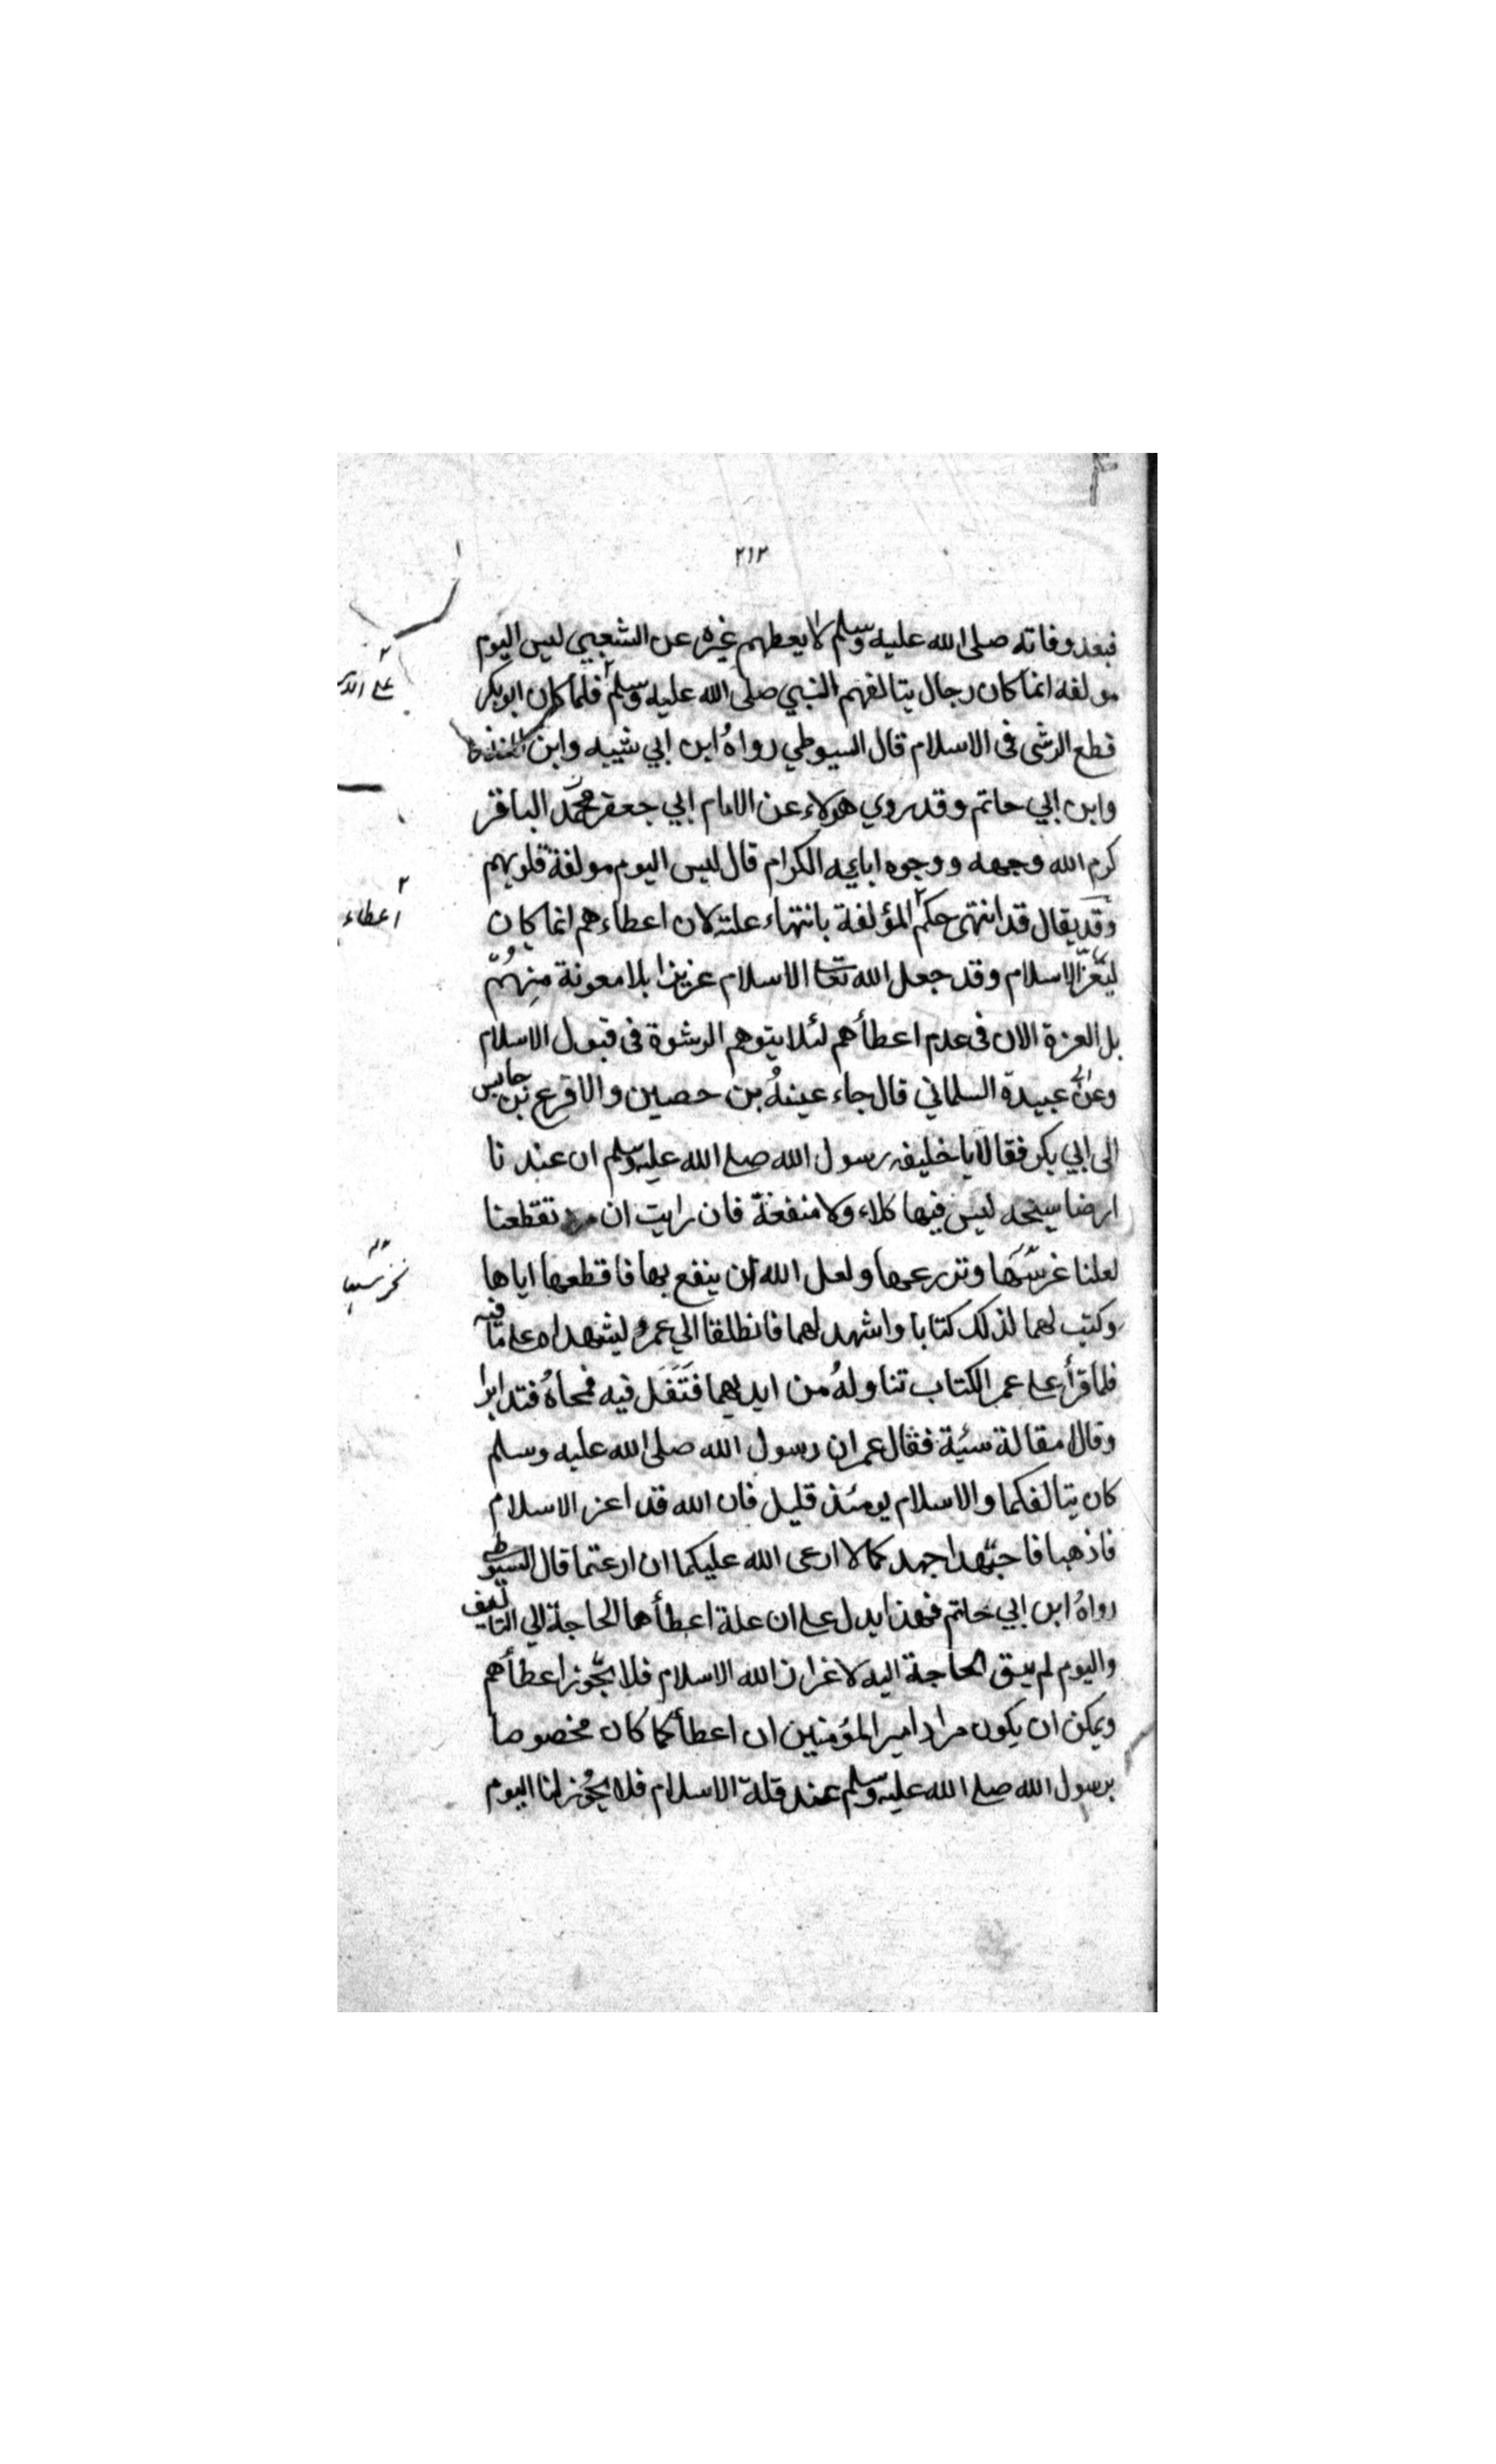 ٢١٢
فبعد وفاته صلى الله عليه وسلم لا يعطهم غيره عن الشعبي ليس اليوم
مولفه انما كان رجال يتالفهم النبي صلى الله عليه وسلم فلما كان ابو بكر
قطع الرشى في الاسلام قال السيوطي رواه ابن ابي شيبه وابن المنذر
وابن ابي حاتم وقد روي هولاء عن الامام ابي جعفر محمد الباقر
كرم الله وجهه ووجوه ابايه الكرام قال ليس اليوم مولفة قلوبهم
وقد يقال قد انتهى حكم المؤلفة بانتهاء علته لان اعطاءهم انما كان
ليعز الاسلام وقد جعل الله تعا الاسلام عزيزا بلا معونة منهم
بل العزة الان في عدم اعطأهم لئلا يتوهم الرشوة في قبول الاسلام
وعن عبيدة السلماني قال جاء عينه بن حصين والاقرع بن حابس
الى ابي بكر فقالا يا خليفه رسول الله صلع الله عليه وسلم ان عندنا
ارضا سبخه ليس فيها كلاء ولا منفعة فان رايت ان تقطعنا
لعلنا غرسها وتزرعها ولعل الله ان ينفع بها فاقطعها اياها
وكتب لهما لذلك كتابا واشهد لهما فانطلقا الي عمر ليشهداه على ما فيه
فلما قرأ على عمر الكتاب تناوله من ايديهما فتفل فيه فمحاه فتدابرا
وقالا مقالة سئية فقال عمر ان رسول الله صلى الله عليه وسلم
كان يتالفكما والاسلام يومئذ قليل فان الله قد اعز الاسلام
فاذهبا فاجتهدا جهد كما لا ارعى الله عليكما ان ارعتما قال السيوطي
رواه ابن ابي حاتم فهذا يدل على ان علة اعطأها الحاجة الي التاليف
واليوم لم يبق الحاجة اليه لاغراز الله الاسلام فلا يجوز اعطأهم
ويمكن ان يكون مراد امير المؤمنين ان اعطأكما كان مخصوصا
برسول الله صلع الله عليه وسلم عند قلة الاسلام فلا يجوز لنا اليوم
اعطاء